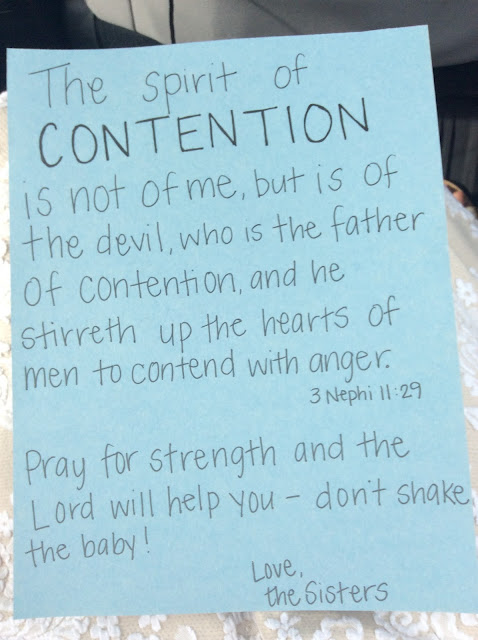 The spirit of
CONTENTION
is not of me, but is of
the devil, who is the father
of contention, and he
stirreth up the hearts of
men to contend with anger.
3 Nephi 11:29
Pray for strength and the
Lord will help you - don't shake
the baby!
Love,
the Sisters